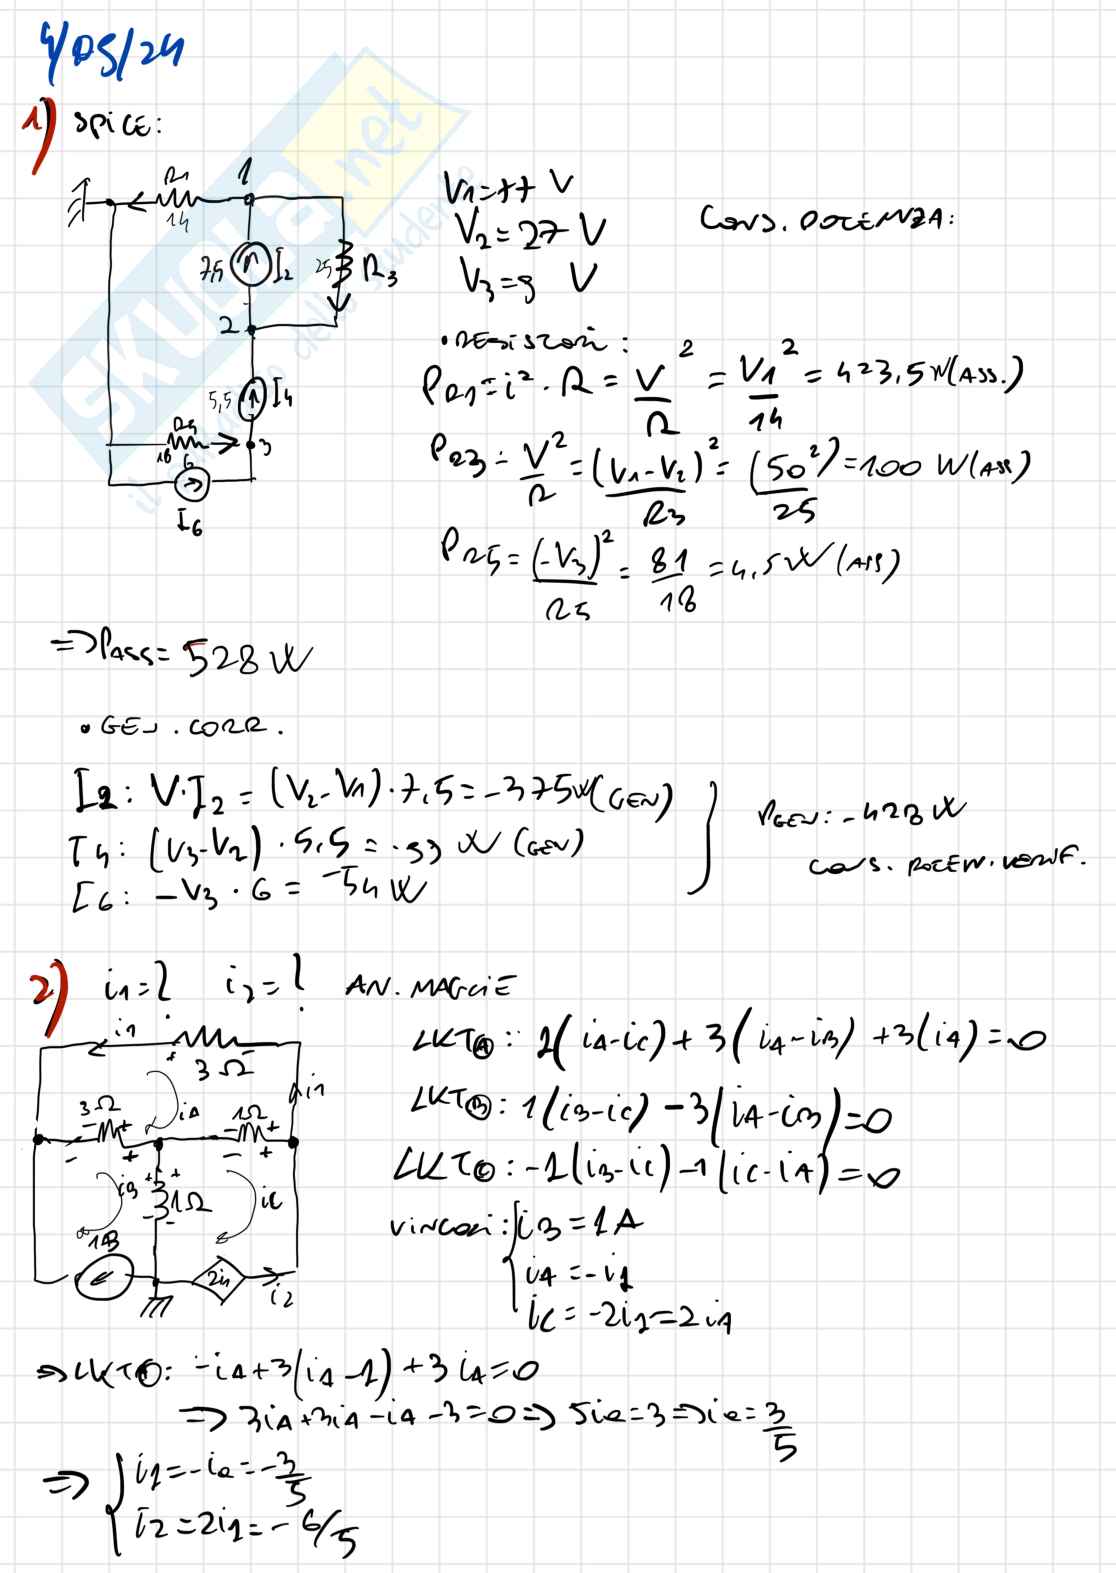 4/05/24
1) SPICE:
R1 1
14
7,5 I2 25 R3
2
5,5 I4
R5
18 3
6
I6
V1=77 V
V2=27 V
V3=9 V
CONS. POTENZA:
• RESISTORI:
PR1=i²·R = V²/R = V1²/14 = 423,5 W (ASS.)
PR3 = V²/R = (V1-V2)²/R3 = (50²)/25 = 100 W (ASS)
PR5 = (-V3)²/R5 = 81/18 = 4,5 W (ASS)
=> PASS = 528 W
• GEN. CORR.
I2: V·I2 = (V2-V1)·7,5 = -375W (GEN)
I4: (V3-V2)·5,5 = -99 W (GEN)
I6: -V3·6 = -54 W
PGEN: -428 W
CONS. POTEN. VERIF.
2) i1=? i2=? AN. MAGLIE
i1 + 3Ω -
iA i1
3Ω 1Ω
- + - +
- + - +
iB + + 1Ω iC
- -
2i1 i2
LKT(A): 1(iA-iC)+3(iA-iB)+3(iA)=0
LKT(B): 1(iB-iC)-3(iA-iB)=0
LKT(C): -1(iB-iC)-1(iC-iA)=0
VINCOLI: { iB=1A
iA=-i1
iC=-2i1=2iA
=> LKT(A): -iA+3(iA-1)+3iA=0
=> 3iA+3iA-iA-3=0 => 5ia=3 => ia=3/5
=> { i1=-ia=-3/5
i2=2i1=-6/5
SKUOLA.net